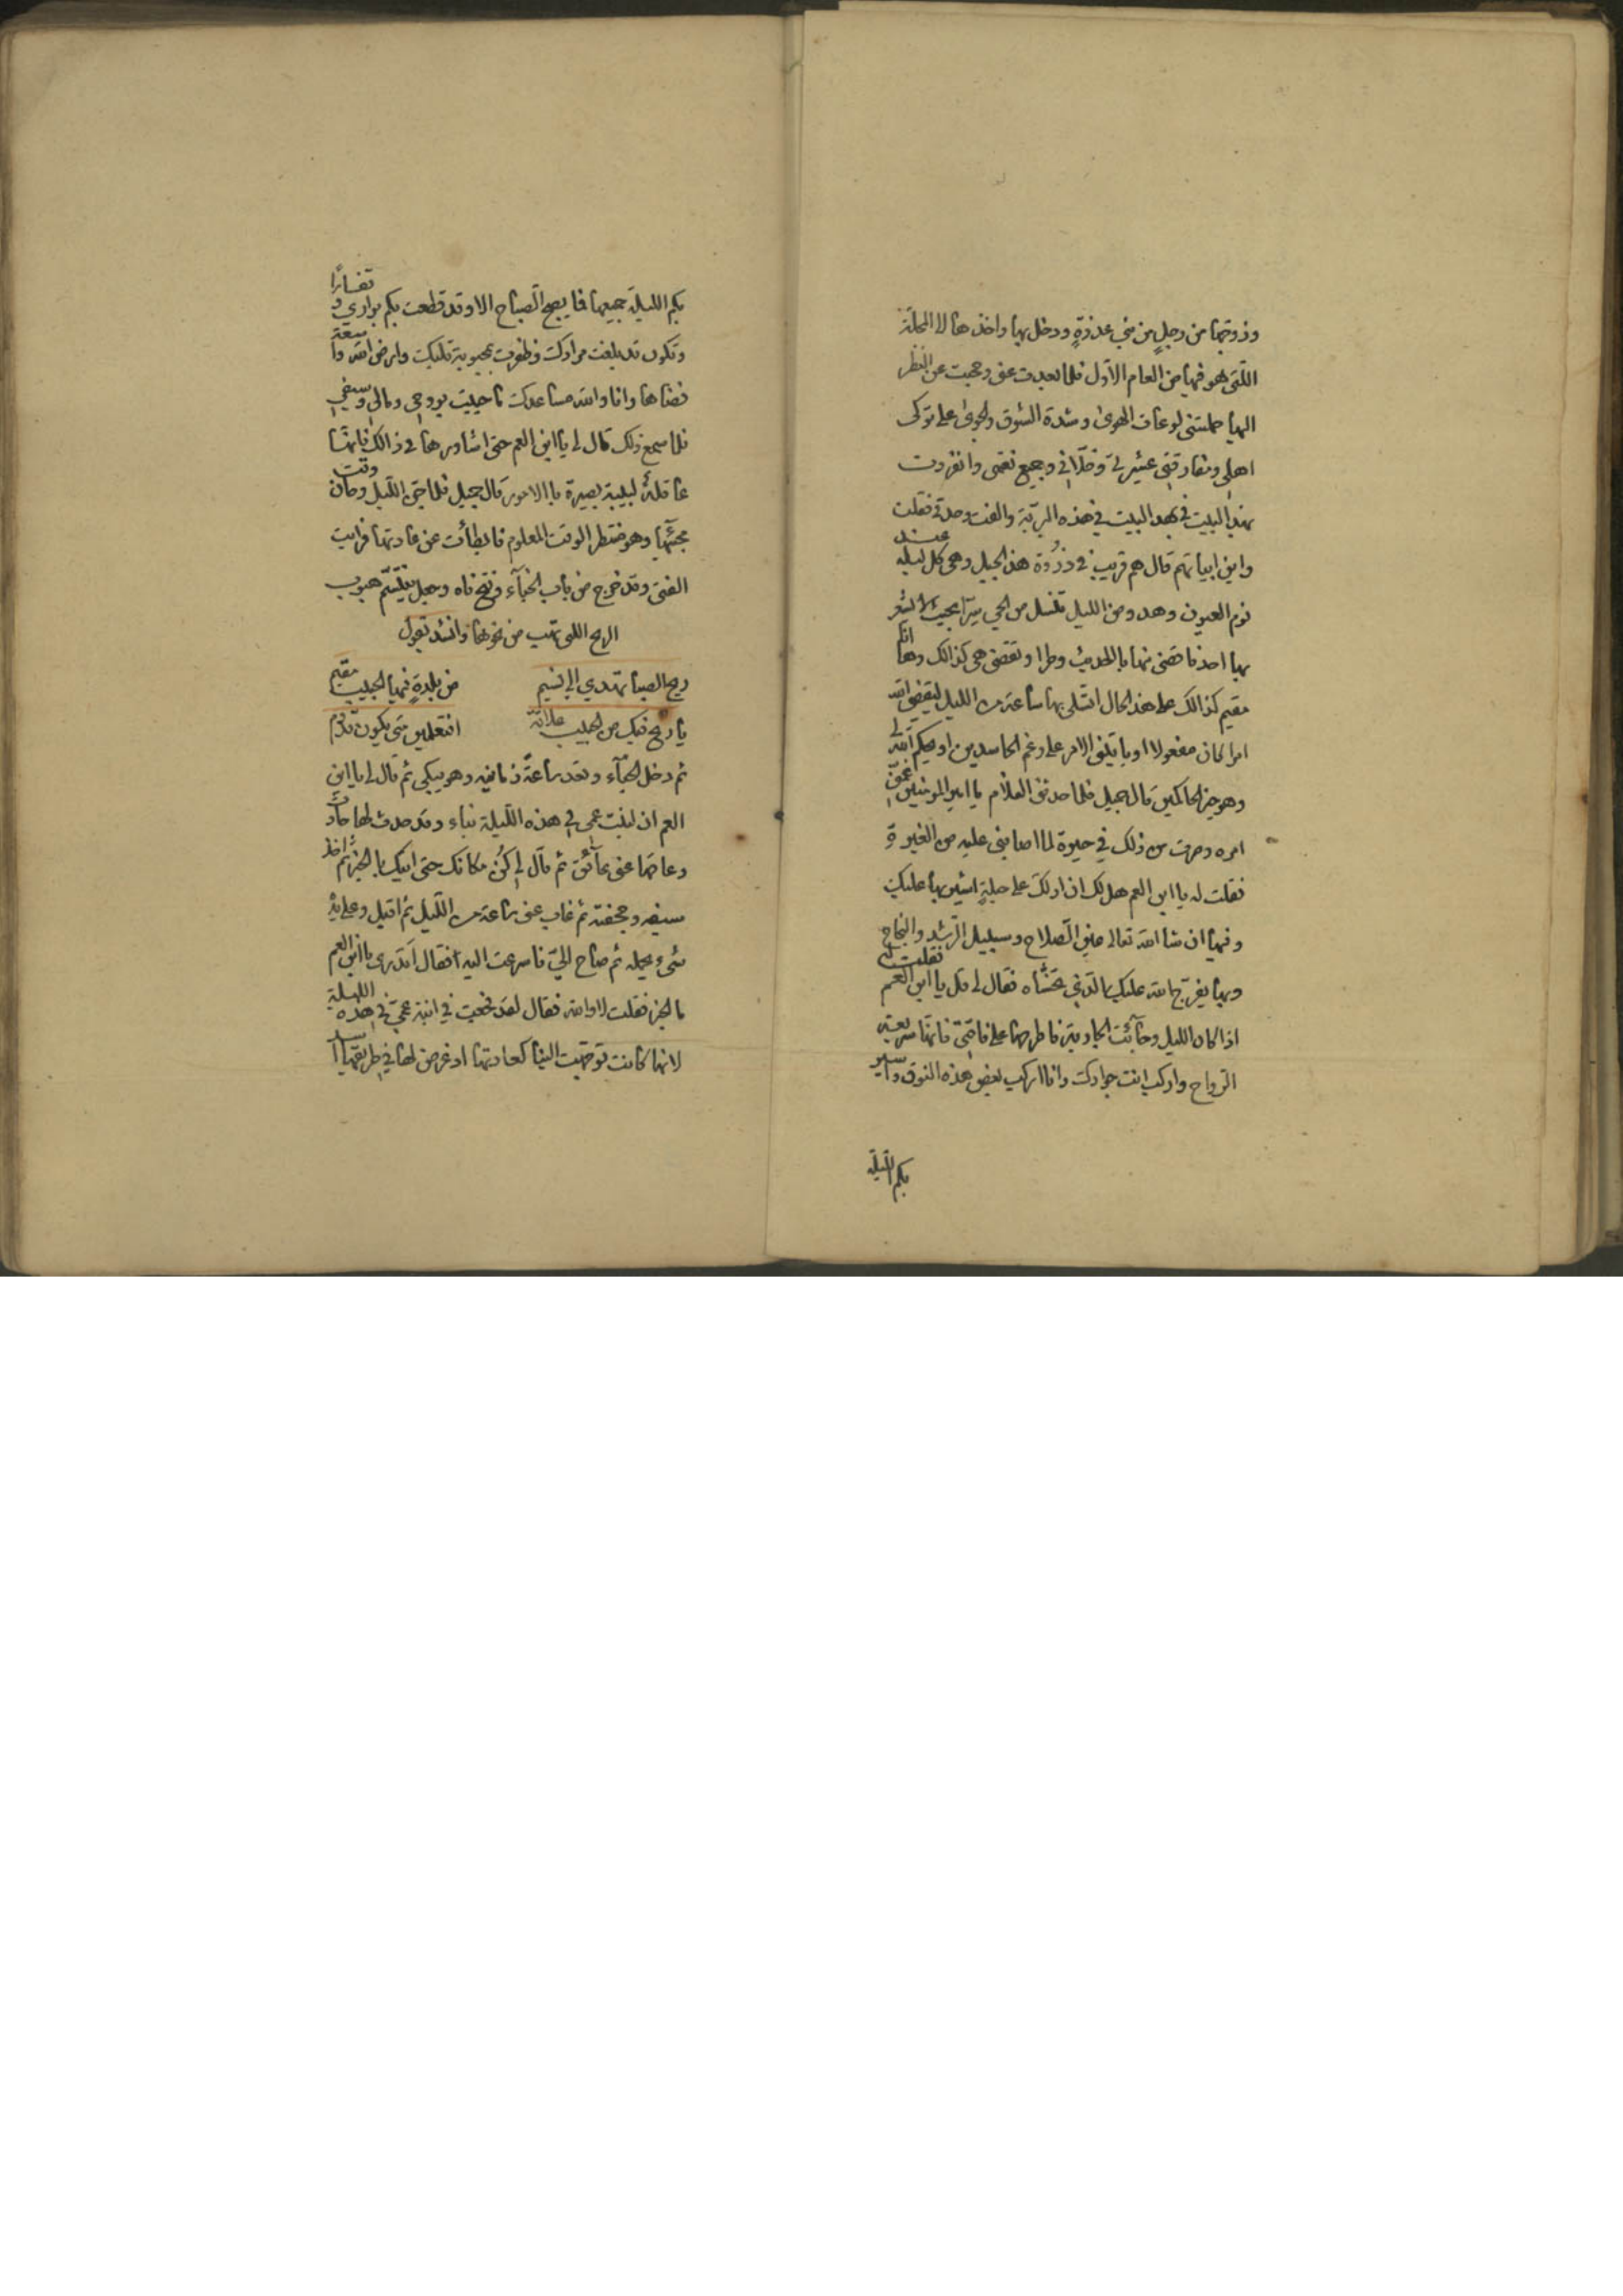 وزوجها من رجلٍ من بني عذرةٍ ودخل بها واخذها الا المحلّة
اللّتي هو فيها من العام الاوّل فلما بعدت عني وحجبت عن النظر
اليها حملتني لوعات الهوى وشدة الشوق والجوى على ترك
اهلي ومفارقتي عشيرتي وخلّاني وجميع نعمي وانفردت
بهذا البيت في هذه البريّة والفت وحدتي فقلت
واين ابياتهم قال هم قريب في ذروة هذا الجبل وهي كل ليله عند
نوم العيون وهدو من الليل تنسل من الحي سرّا بحيث لا يشعر
بها احد فاقضي منها بالحديث وطرا وتقضي هي كذالك وها انا
مقيم كذالك على هذا الحال اتسلى بها ساعة من الليل ليقضي الله
امرا كان مفعولا او ياتيني الامر على رغم الحاسدين او يحكم الله لي
وهو خير الحاكمين قال جميل فلما حدثني الغلام يا امير المومنين غمّني
امره وصرت من ذلك في حيرة لما اصابني عليه من الغيرة
فقلت له يا ابن العم هل لك ان ادلك على حيلةٍ اشير بها عليك
وفيها ان شا الله تعالى عين الصّلاح وسبيل الرّشد والنجاح
وبها يفرّج الله عليك الّذي تخشاه فقال لي قل يا ابن العم فقلت له
اذا كان الليل وجآئت الجارية فاطرحها على ناقتي فانها سريعة
الرّواح واركب انت جوادك وانا اركب بعض هذه النوق واسير
بكم اللّيلة
بكم الليلة جميعها فما يصبح الصّباح الا وقد قطعت بكم براري وقفارًا
وتكون قد بلغت مرادك وظفرت بمحبوبة قلبك وارض الله واسعة
فضاها وانا والله مساعدك ما حييت بروحي ومالي وسيفي
فلما سمع ذلك قال لي يا ابن العم حتى اشاورها في ذالك فانها
عاقلة لبيبة بصيرة با الامور قال جميل فلما جنّ اللّيل وحان وقت
مجيئها وهو منتظر الوقت المعلوم فابطأت عن عادتها فرايت
الفتى وقد خرج من باب الخبآء وفتح فاه وجعل يتنسّم هبوب
الريح اللتي تهب من نحوها وانشد يقول
ريح الصبا تهدي الي نسيم من بلدةٍ فيها الحبيب مقيم
يا ريح فيك من الحبيب علامة افتعلمين متى يكون قدوم
ثم دخل الخبآء وقعد ساعةً زمانيه وهو يبكي ثم قال لي يا ابن
العم ان لبنت عمي في هذه اللّيلة نباء وقد حدث لها حادث
وعاقها عني عآئق ثم قال لي كُن مكانك حتى اتيك با الخبر ثم اخذ
سيفه وحجفته ثم غاب عني ساعة من اللّيل ثم اقبل وعلى يده
شيء يحمله ثم صاح اليّ فاسرعت اليه فقال اتدري يا ابن العم
ما الخبر فقلت لا والله فقال لقد فجعت في ابنة عمي في هذه الليلة
لانها كانت توجّهت الينا كعادتها اذ عرض لها في طريقها اسد